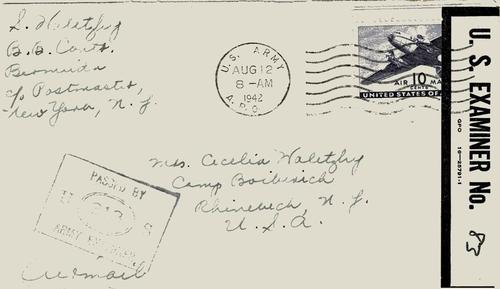 S. Waletzky
B.B. Conts.
Bermuda
c/o Postmaster,
New York, N.Y.
U. S. ARMY
AUG 12
8-AM
1942
A.P.O.
AIR MA
10
CENTS
UNITED STATES OF
U. S. EXAMINER No. 83
GPO 16-28791-1
Mrs. Cecelia Waletzky
Camp Boiberick
Rhinebeck, N.Y.
U.S.A.
PASSED BY
U S
ARMY EXAMINER
Airmail